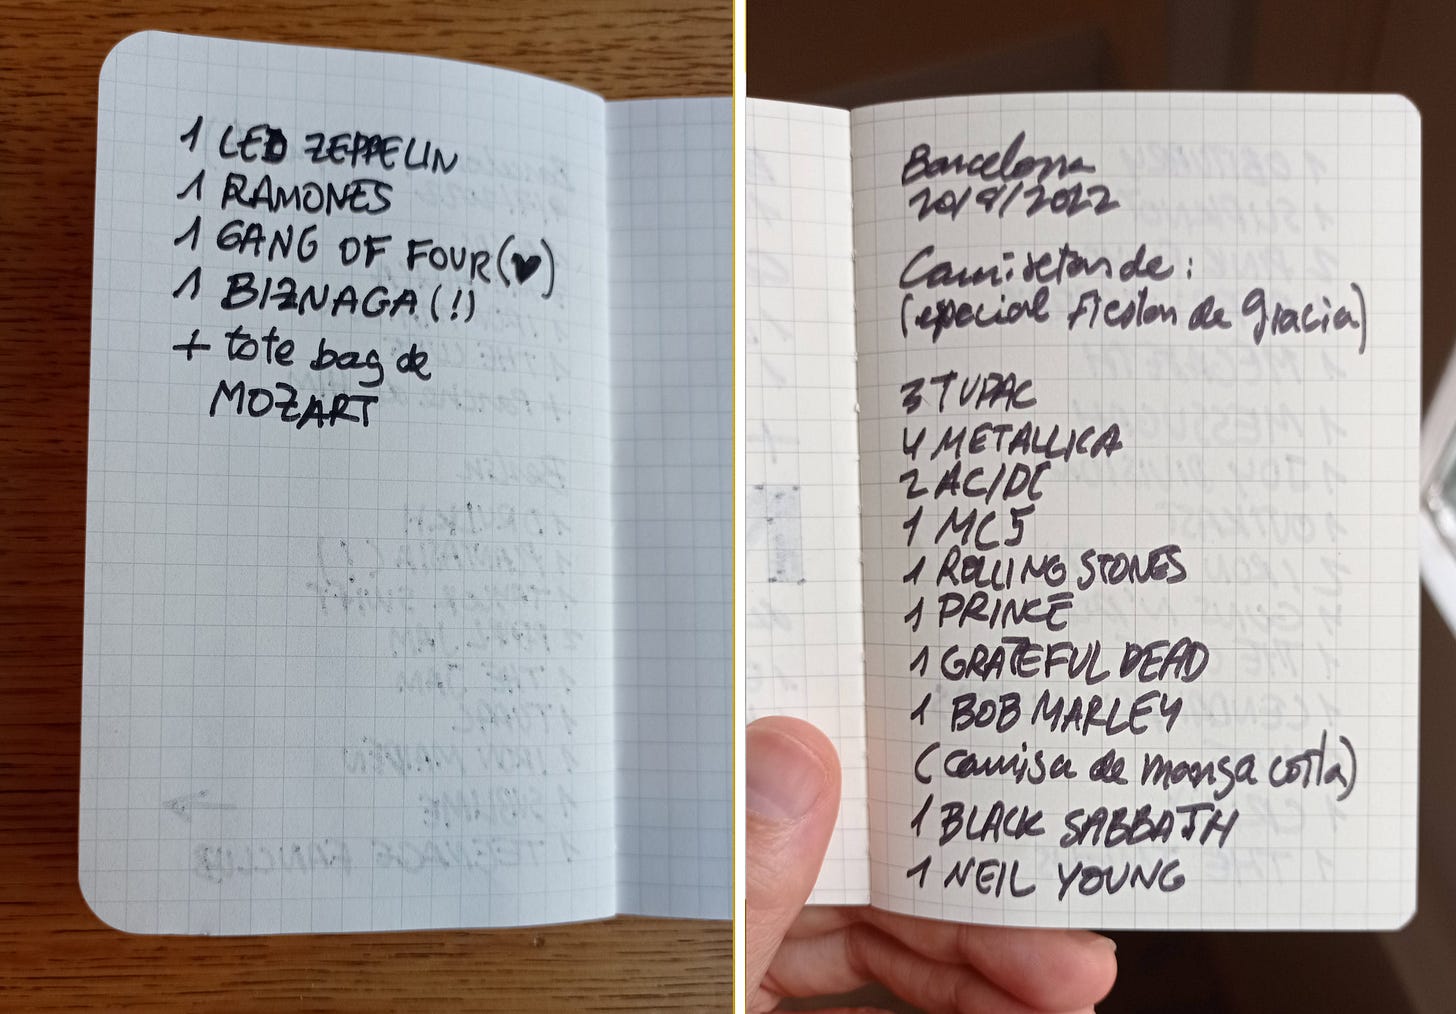 1 LED ZEPPELIN
1 RAMONES
1 GANG OF FOUR (♥)
1 BIZNAGA (!)
+ tote bag de
MOZART
Barcelona
20/9/2022
Camisetas de:
(especial fiestas de Gracia)
3 TUPAC
4 METALLICA
2 AC/DC
1 MC5
1 ROLLING STONES
1 PRINCE
1 GRATEFUL DEAD
1 BOB MARLEY
(camisa de manga corta)
1 BLACK SABBATH
1 NEIL YOUNG